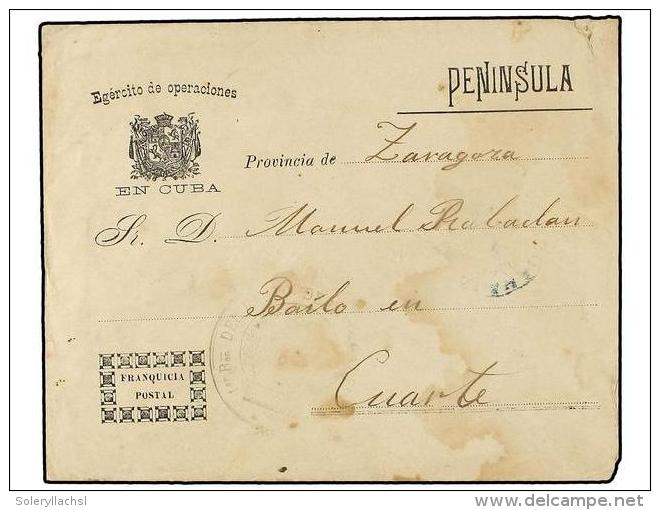 Egército de operaciones
EN CUBA
PENINSULA
Provincia de Zaragoza
Sr. D. Manuel Rabadan
Bailo en
Cuarte
FRANQUICIA
POSTAL
Bon. DE
Soleryllachsl
delcampe.net